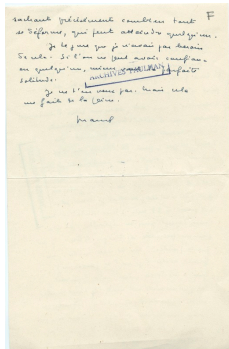 F
sachant précisément combien tout
se déforme, qui peut atteindre quelqu'un.
Je te jure que je n'avais pas besoin
de cela. Si l'on ne peut avoir confiance
en quelqu'un, mieux vaut la parfaite
ARCHIVES PAULHAN
solitude.
Je ne t'en veux pas. Mais cela
me fait de la peine.
Marcel